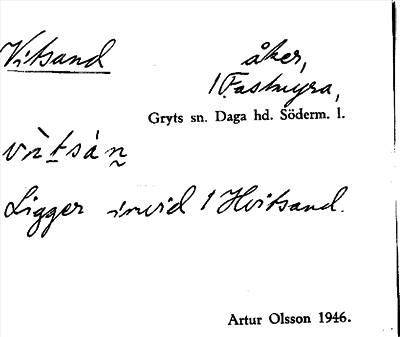 Vitsand åker,
1 Fastnýra,
Gryts sn. Daga hd. Söderm. l.
vìtsán
Ligger invid 1 Hvitsand.
Artur Olsson 1946.